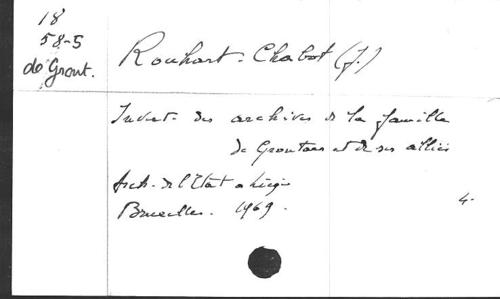 18
58-5
de Grout.
Rouhart-Chabot (J.)
Invent. des archives de la famille
de Groutars et de ses alliés
Arch. de l'Etat à Liège
Bruxelles. 1969.
4.